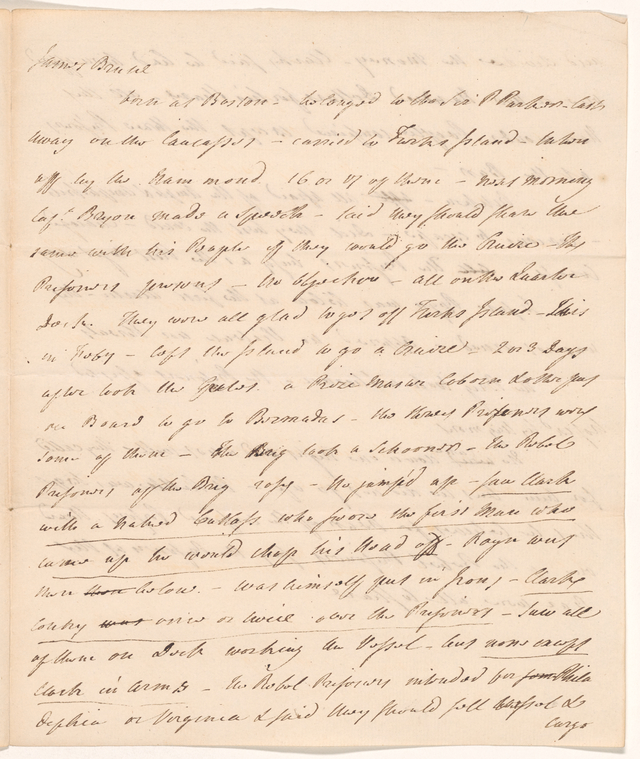 James Bruce
born at Boston - belonged to the Sir P Parker - cast
away on the Caucasses - carried to Turks Island - taken
off by the Hammond. 16 or 17 of them - next morning
Capt. Bryon made a Speech - said they should share the
same with his People if they would go the Cruize - The
Prisoners present - No objection - all on the Quarter
Deck. They were all glad to get off Turks Island - This
in Feby - left the Island to go a Cruize - 2 or 3 Days
after took the a Prize Master Coborn & others put
on Board to go to Bermudas - the Prisoners were
some of them - The Brig took a Schooner - the Rebel
Prisoners of the Brig rose - he jumped up - saw Clark
with a naked Cutlass who swore the first Man who
came up he would chop his Head off - went
then below. - was himself put in Irons - Clark
Centry was once or twice over the Prisoners - Saw all
of them on Deck working the Vessel - but none except
Clark in Arms - the Rebel Prisoners intended for Phila
delphia or Virginia & said they should sell Vessel &
Cargo